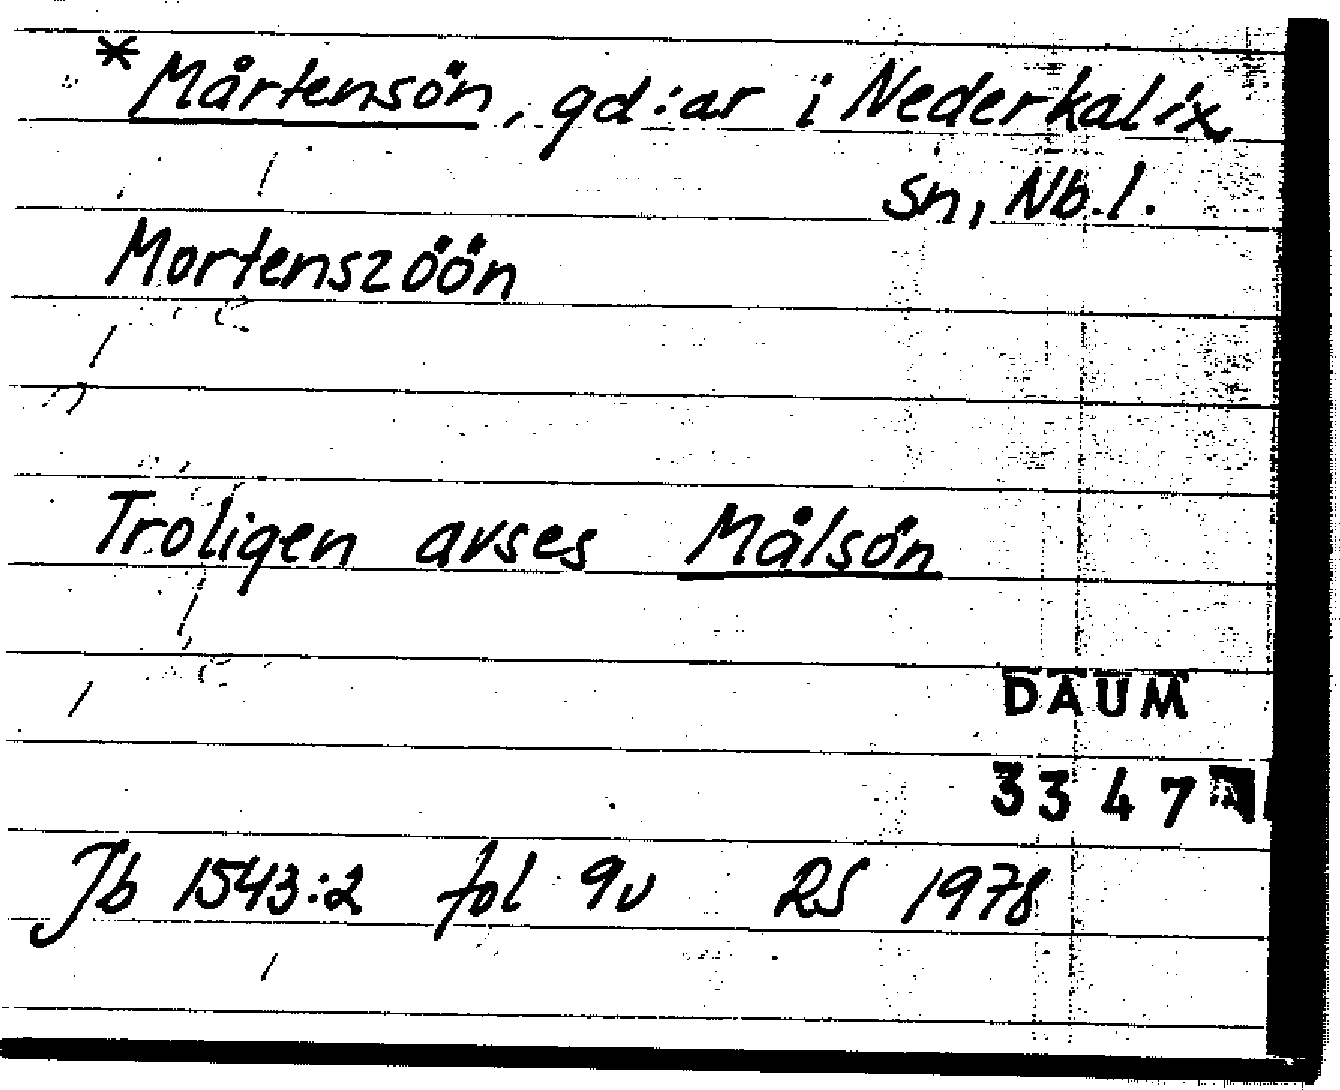 *Mårtensön, gd:ar i Nederkalix
sn, Nb.l.
Mortenszöön
Troligen avses Målsön
DAUM
3347
Jb 1543:2 fol 9v RS 1978